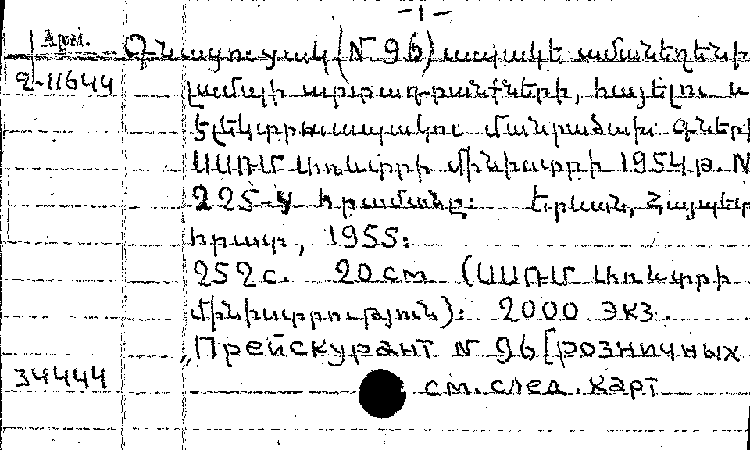 -1-
Арм. Գնացուցակ (N 96) ապակե ամանեղենի
2-11644 լամպի արտադրանքների, հայելու և
էլեկտրաապակու մանրածախ գների
ՍՍՌՄ Առևտրի մինիստրի 1954 թ. N
225-ց հրամանը։ Երևան, Հայպետ
հրատ, 1955։
252 с. 20 см (ՍՍՌՄ Առևտրի
մինիստրություն)։ 2000 экз.
„Прейскурант N 96 [розничных
34444 см. след. карт